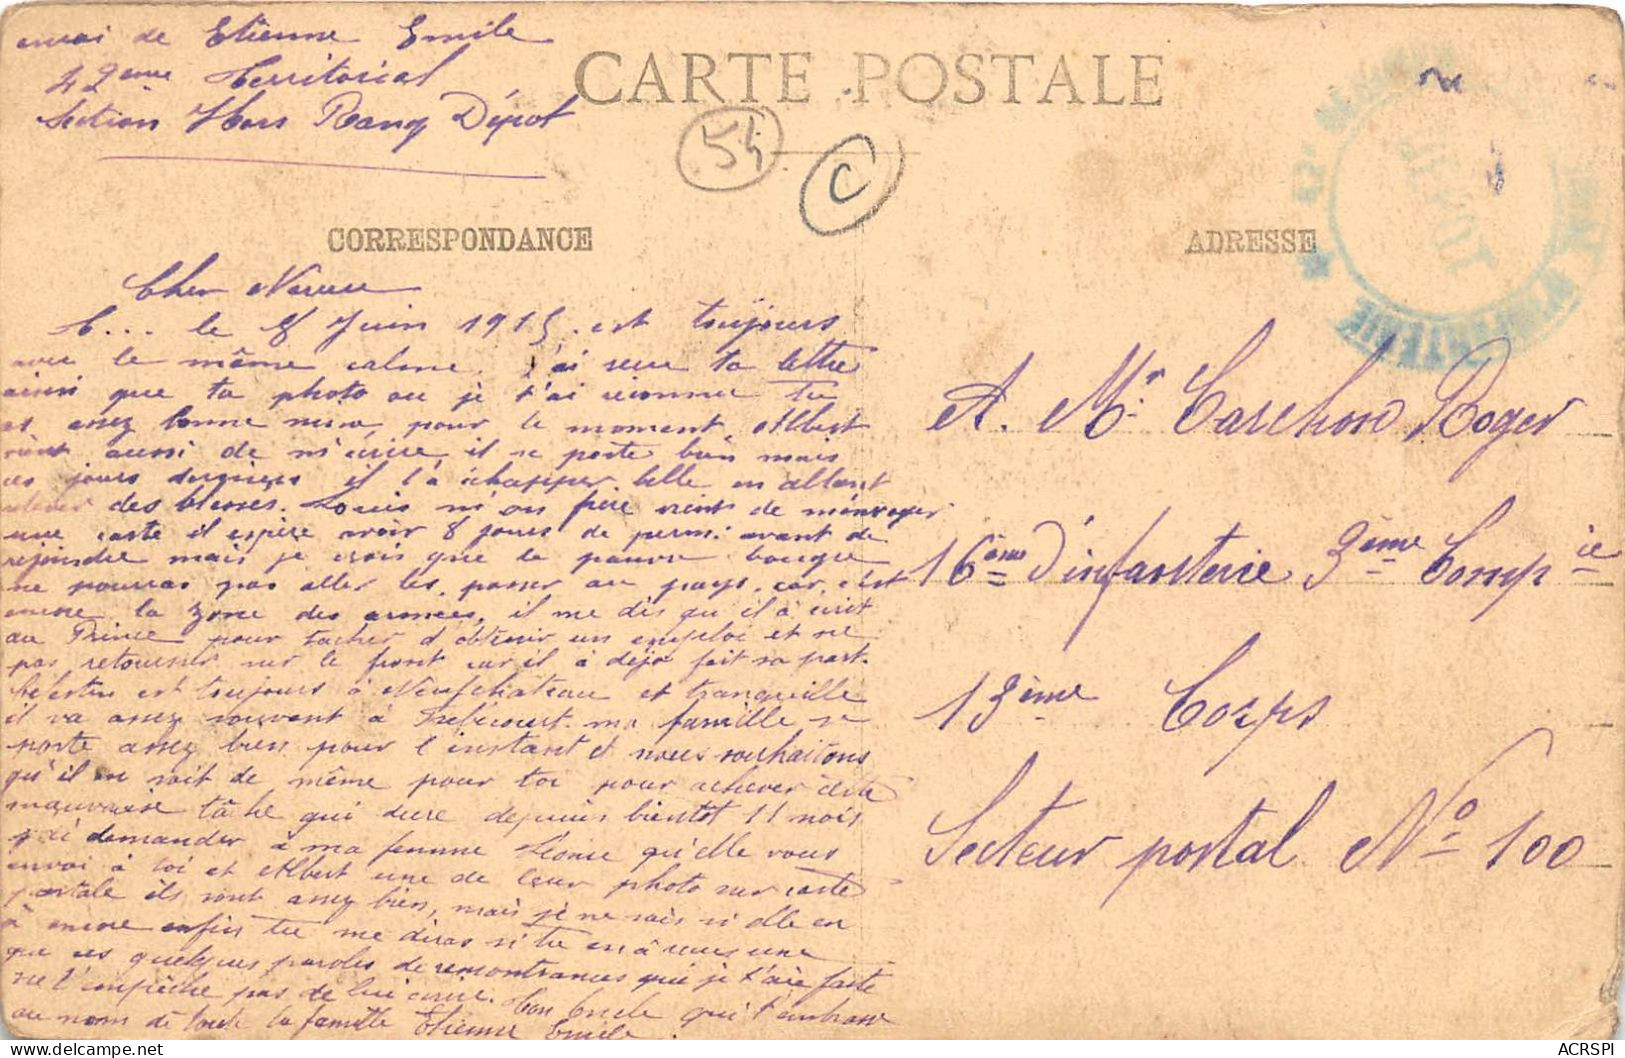 envoi de Etienne Emile
42ème Territorial
Section Hors Rang Dépot
CARTE POSTALE
54
C
CORRESPONDANCE
ADRESSE
DEPOT
D'INFANTERIE
Cher Neveu
C... le 8 Juin 1915. est toujours
avec le même calme. j'ai reçu ta lettre
ainsi que ta photo ou je t'ai reconnu tu
as assez bonne mine, pour le moment Albert
vient aussi de m'écrire, il se porte bien mais
ces jours derniers il l'à échapper belle en allant
relever des blessés. Louis m'on frère vient de m'envoyer
une carte il espère avoir 8 jours de permi. avant de
rejoindre mais je crois que le pauvre bougre
ne pourras pas aller les passer au pays, car c'est
encore la zone des armées, il me dis qu'il à écrit
au Prince pour tacher d'obtenir un emploi et ne
pas retourner sur le front car il à déja fait sa part.
Célestin est toujours à Neufchateau et tranquille
il va assez souvent à Frébécourt. ma famille se
porte assez bien pour l'instant et nous souhaitons
qu'il en soit de même pour toi pour achever cette
mauvaise tâche qui dure depuis bientot 11 mois
j'ai demander à ma femme Léonie qu'elle vous
envoi à toi et Albert une de leur photo sur carte
postale ils sont assez bien, mais je ne sais si elle en
à encore enfin tu me diras si tu en à reçus une
que ces quelques paroles de remontrances que je t'ai faite
ne t'empêche pas de lui écrire. Ton Oncle qui t'embrasse
au nom de toute la famille Etienne Emile.
A. Mr. Carchon Roger
16ème d'infanterie 3ème Compie
13ème Corps
Secteur postal No 100
ACRSPI